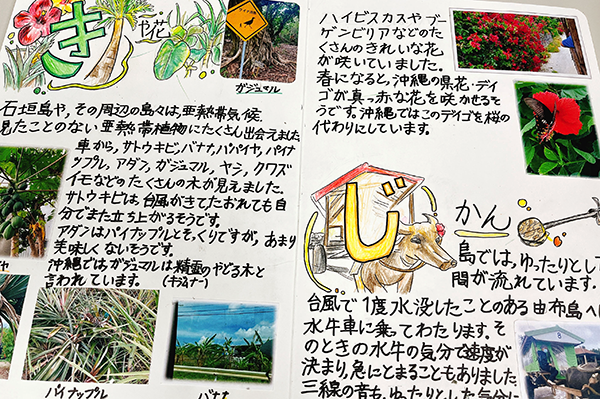 き
や花
ガジュマル
石垣島や、その周辺の島々は、亜熱帯気候。
見たことのない亜熱帯植物にたくさん出会えました
車から、サトウキビ、バナナ、パパイヤ、パイナ
ップル、アダン、ガジュマル、ヤシ、クワズ
イモなどのたくさんの木が見えました。
サトウキビは、台風がきてたおれても自
分でまた立ち上がるそうです。
アダンはパイナップルとそっくりですが、あまり
美味しくないそうです。
沖縄では、ガジュマルは精霊のやどる木と
言われています。(キジムナー)
イヤ
パイナップル
バナナ
ハイビスカスやブー
ゲンビリアなどのた
くさんのきれいな花
が咲いていました。
春になると、沖縄の県花・デイ
ゴが真っ赤な花を咲かせるそ
うです。沖縄ではこのデイゴを桜の
代わりにしています。
じ
かん
島では、ゆったりとし
間が流れています。
台風で1度水没したことのある由布島へ
水牛車に乗ってわたります。そ
のときの水牛の気分で速度が
決まり、急にとまることもありました。
三線の音も、ゆったりとした気分に